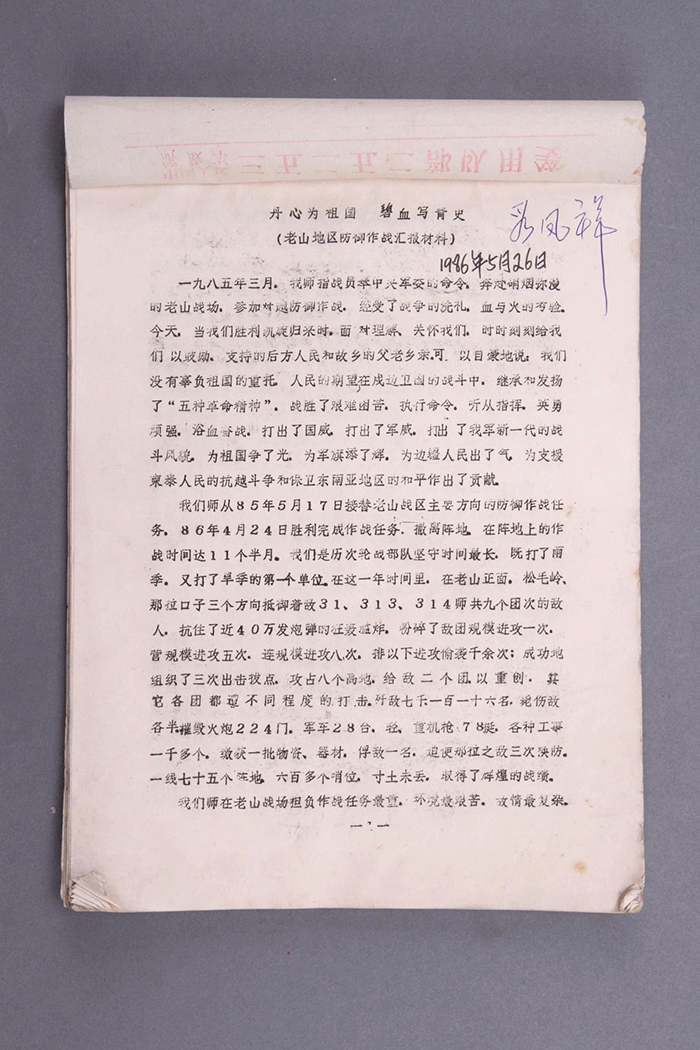 三五二五二部队用笺
丹心为祖国 碧血写青史
(老山地区防御作战汇报材料)
1986年5月26日
一九八五年三月，我师指战员奉中央军委的命令，奔赴硝烟弥漫
的老山战场，参加对越防御作战，经受了战争的洗礼，血与火的考验。
今天，当我们胜利凯旋归来时，面对理解、关怀我们，时时刻刻给我
们以鼓励、支持的后方人民和故乡的父老乡亲，可以自豪地说：我们
没有辜负祖国的重托，人民的期望，在戍边卫国的战斗中，继承和发扬
了“五种革命精神”，战胜了艰难困苦，执行命令，听从指挥，英勇
顽强，浴血奋战，打出了国威，打出了军威，打出了我军新一代的战
斗风貌，为祖国争了光，为军旗添了辉，为边疆人民出了气，为支援
柬泰人民的抗越斗争和保卫东南亚地区的和平作出了贡献。
我们师从85年5月17日接替老山战区主要方向的防御作战任
务，86年4月24日胜利完成作战任务，撤离阵地。在阵地上的作
战时间达11个半月。我们是历次轮战部队坚守时间最长，既打了雨
季，又打了旱季的第一个单位。在这一年时间里，在老山正面，松毛岭、
那拉口子三个方向抵御着敌31、313、314师共九个团次的敌
人，抗住了近40万发炮弹的狂轰滥炸，粉碎了敌团规模进攻一次，
营规模进攻五次，连规模进攻八次，排以下进攻偷袭千余次；成功地
组织了三次出击拔点，攻占八个高地，给敌二个团以重创，其
它各团都遭不同程度的打击。歼敌七千一百一十六名，死伤敌
各半，摧毁火炮224门，军车28台，轻、重机枪78挺，各种工事
一千多个，缴获一批物资、器材，俘敌一名，迫使那拉之敌三次换防。
一线七十五个阵地，六百多个哨位，寸土未丢，取得了辉煌的战绩。
我们师在老山战场担负作战任务最重，环境最艰苦，敌情最复杂。